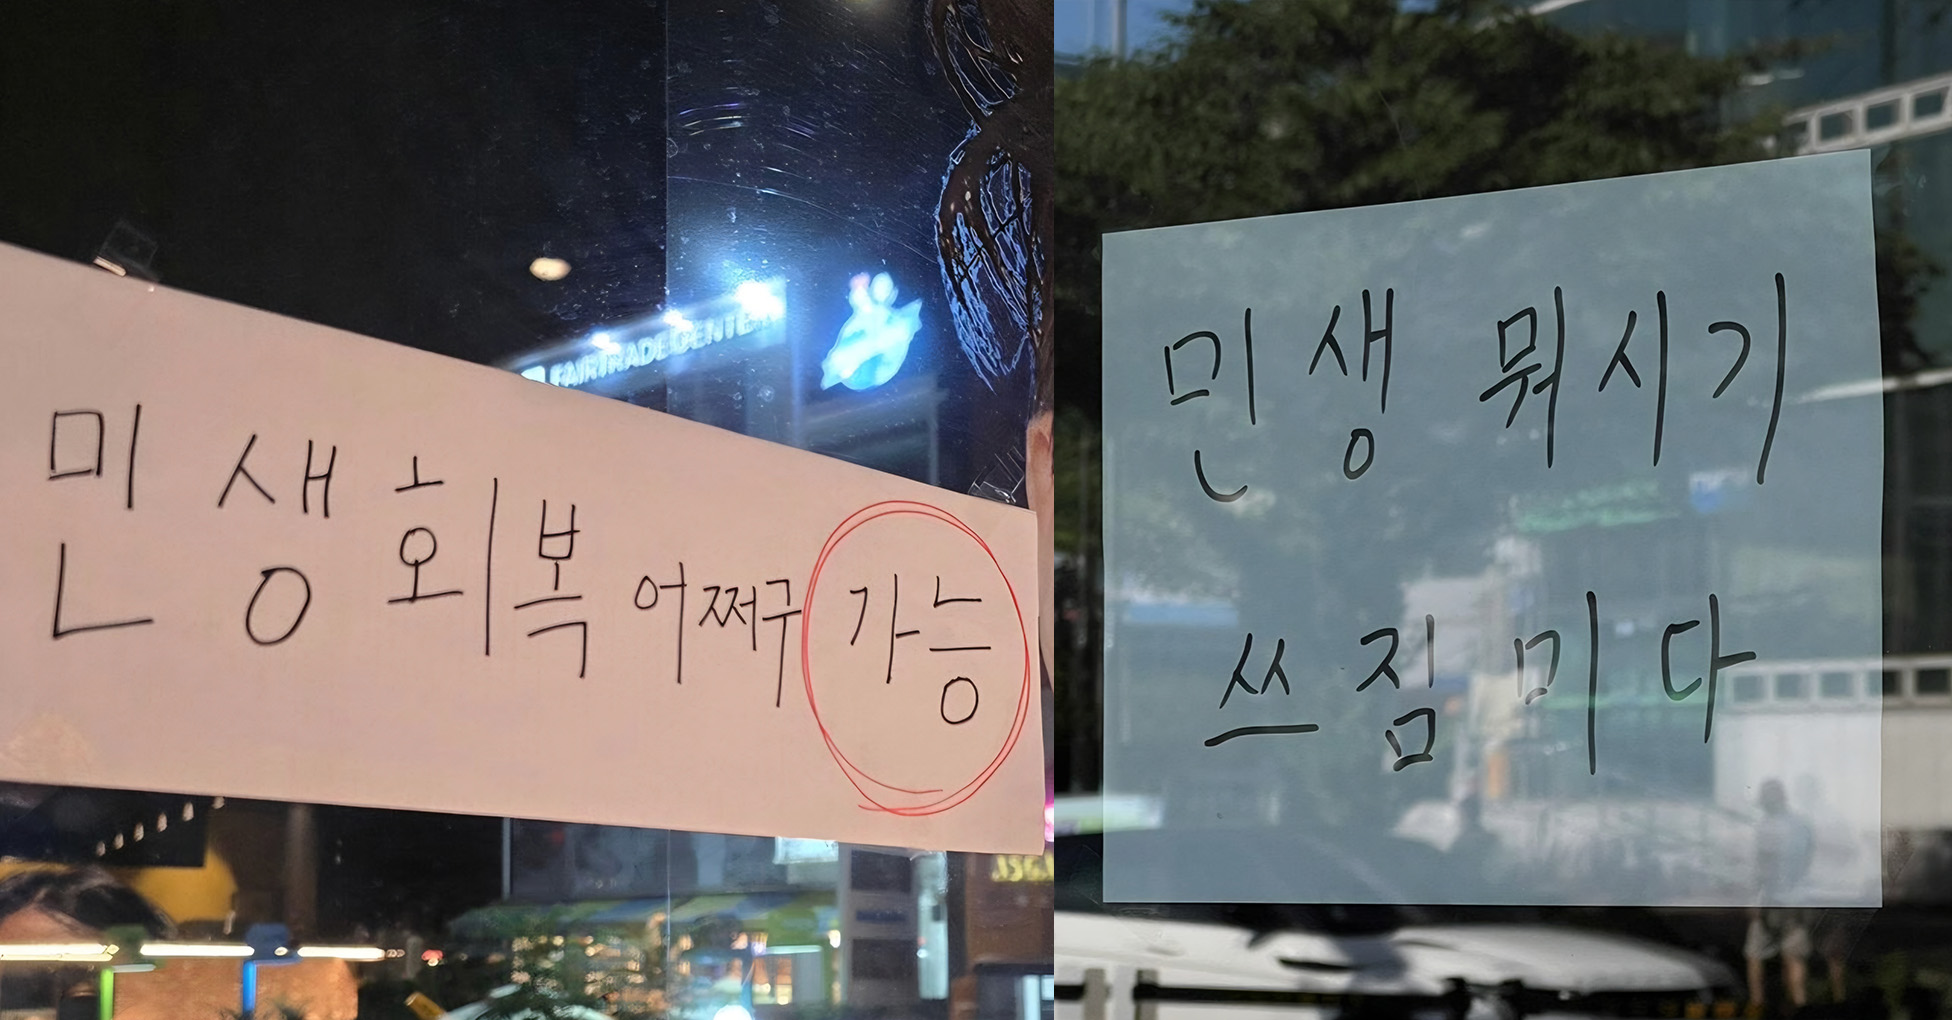 FAIRTRADE CENTER
민생회복 어쩌구 가능
민생 뭐시기
쓰짐미다